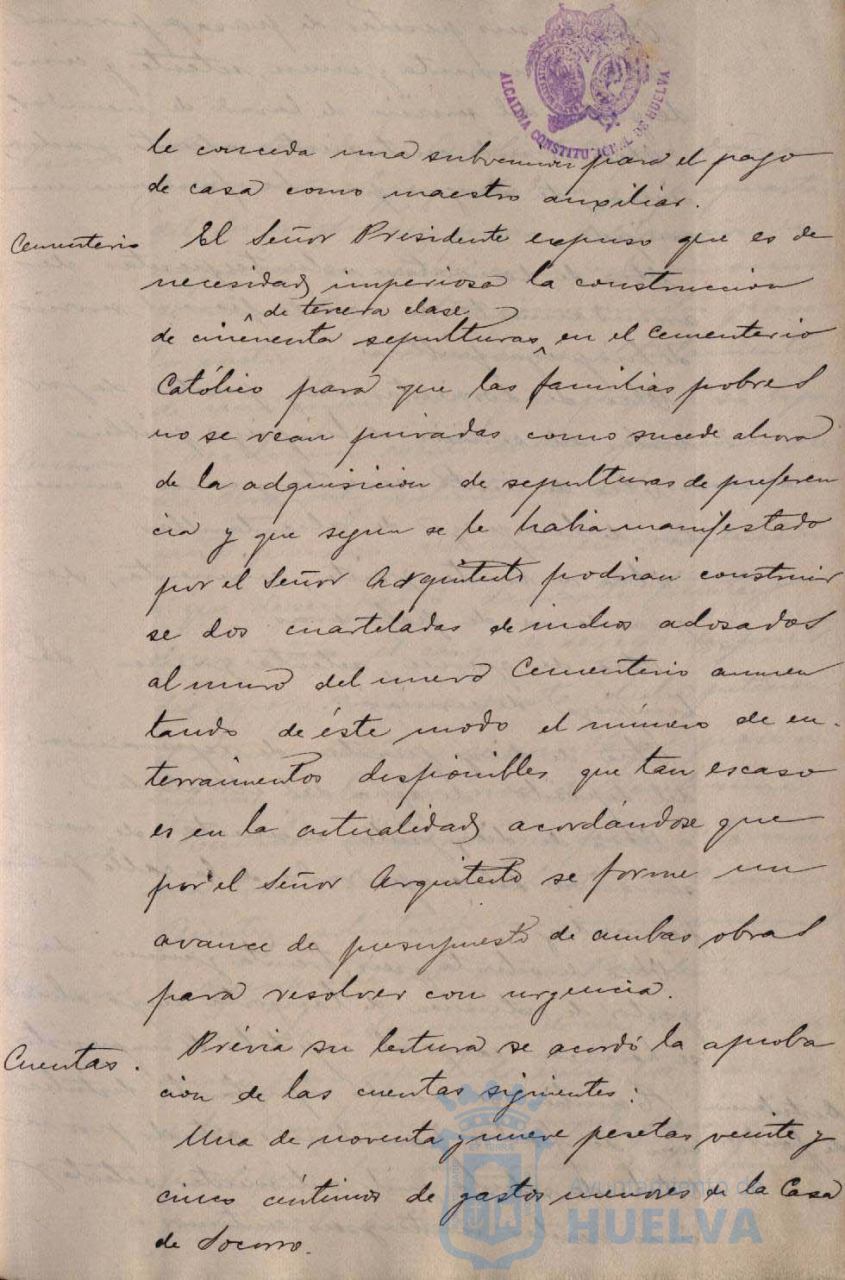 ALCALDIA CONSTITUCIONAL DE HUELVA
le conceda una subvencion para el pago
de casa como maestro auxiliar.
Cementerio El Señor Presidente expuso que es de
necesidad imperiosa la construccion
de tercera clase
de cincuenta sepulturas en el Cementerio
Católico para que las familias pobres
no se vean privadas como sucede ahora
de la adquisicion de sepulturas de preferen
cia y que segun se le habia manifestado
por el Señor Arquitecto podrian construir
se dos cuarteladas de nichos adosados
al muro del nuevo Cementerio aumen
tando de éste modo el número de en-
terramientos disponibles que tan escaso
es en la actualidad, acordándose que
por el Señor Arquitecto se forme un
avance de presupuesto de ambas obras
para resolver con urgencia.
Cuentas. Prévia su lectura se acordó la aproba
cion de las cuentas siguientes:
Una de noventa y nueve pesetas veinte y
cinco céntimos de gastos menores de la Casa
de Socorro.
Ayuntamiento de
HUELVA